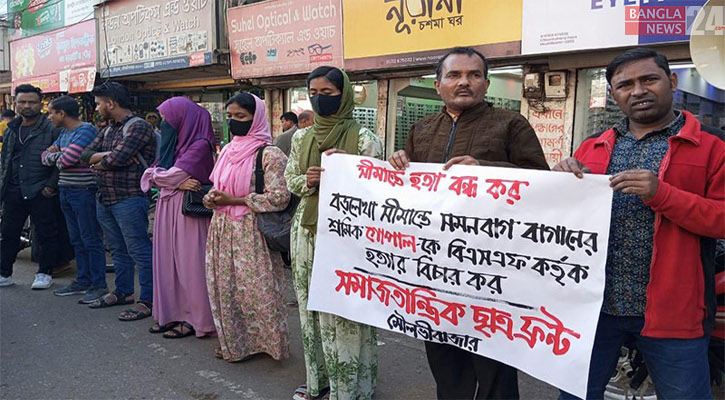 সুহেল অপটিক্স এন্ড ওয়াচ
Suhel Optical & Watch
সুহেল অপটিক্যাল এন্ড ওয়াচ
নূরানী
চশমা ঘর
BANGLA
NEWS
24
সীমান্তে হত্যা বন্ধ কর
বড়লেখা সীমান্তে সমনবাগ বাগানের
শ্রমিক গোপাল-কে বিএসএফ কর্তৃক
হত্যার বিচার কর
সমাজতান্ত্রিক ছাত্র ফ্রন্ট
মৌলভীবাজার